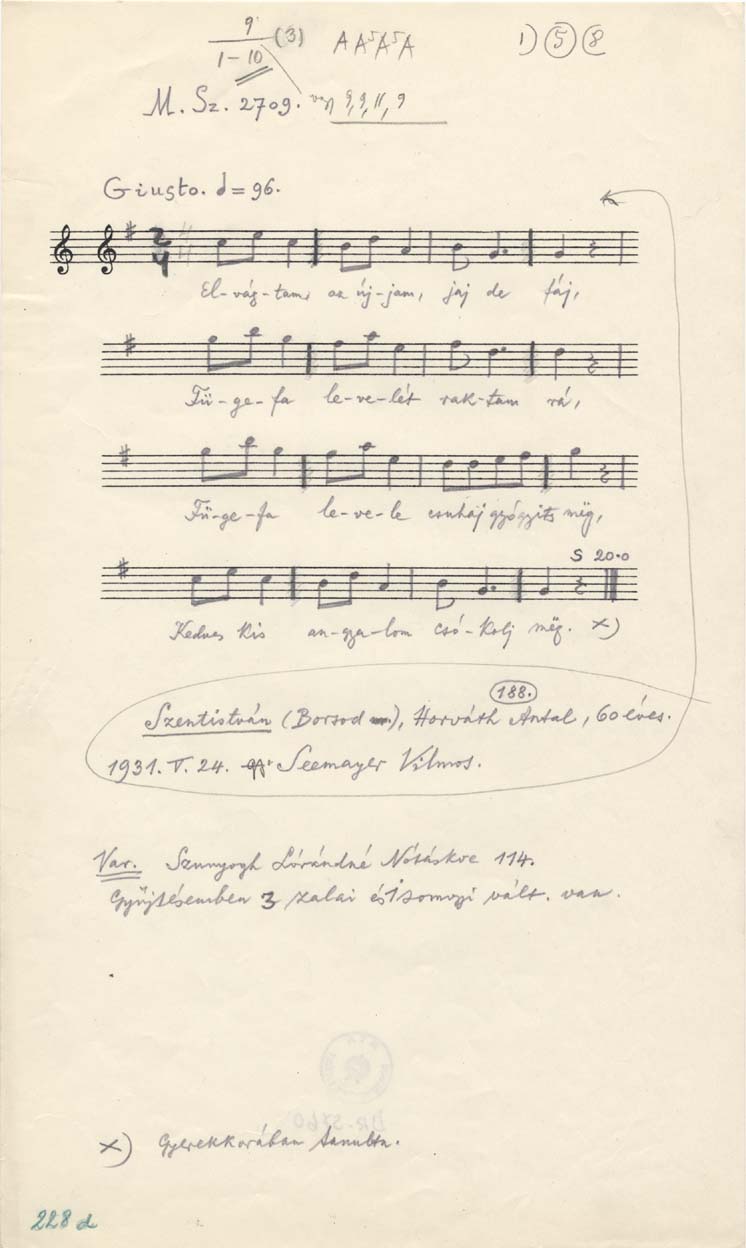 9 (3) A A⁵ A⁵ A 1) 5 8
1-10
M. Sz. 2709. vagy 9, 9, 11, 9
Giusto. = 96.
2 4
4 4
El-vág-tam az új-jam, jaj de fáj,
Fü-ge-fa le-ve-lét rak-tam rá,
Fü-ge-fa le-ve-le csuhaj gyógyits mëg,
S 20.0
Kedves kis an-gya-lom csó-kolj mëg. x)
188.
Szentistván (Borsod), Horváth Antal, 60 éves.
1931. V. 24. Seemayer Vilmos.
Var. Szunyogh Lórándné Nótáskve 114.
Gyüjtésemben 3 zalai és 1 somogyi vált. van.
x) Gyerekkorában tanulta.
228 d